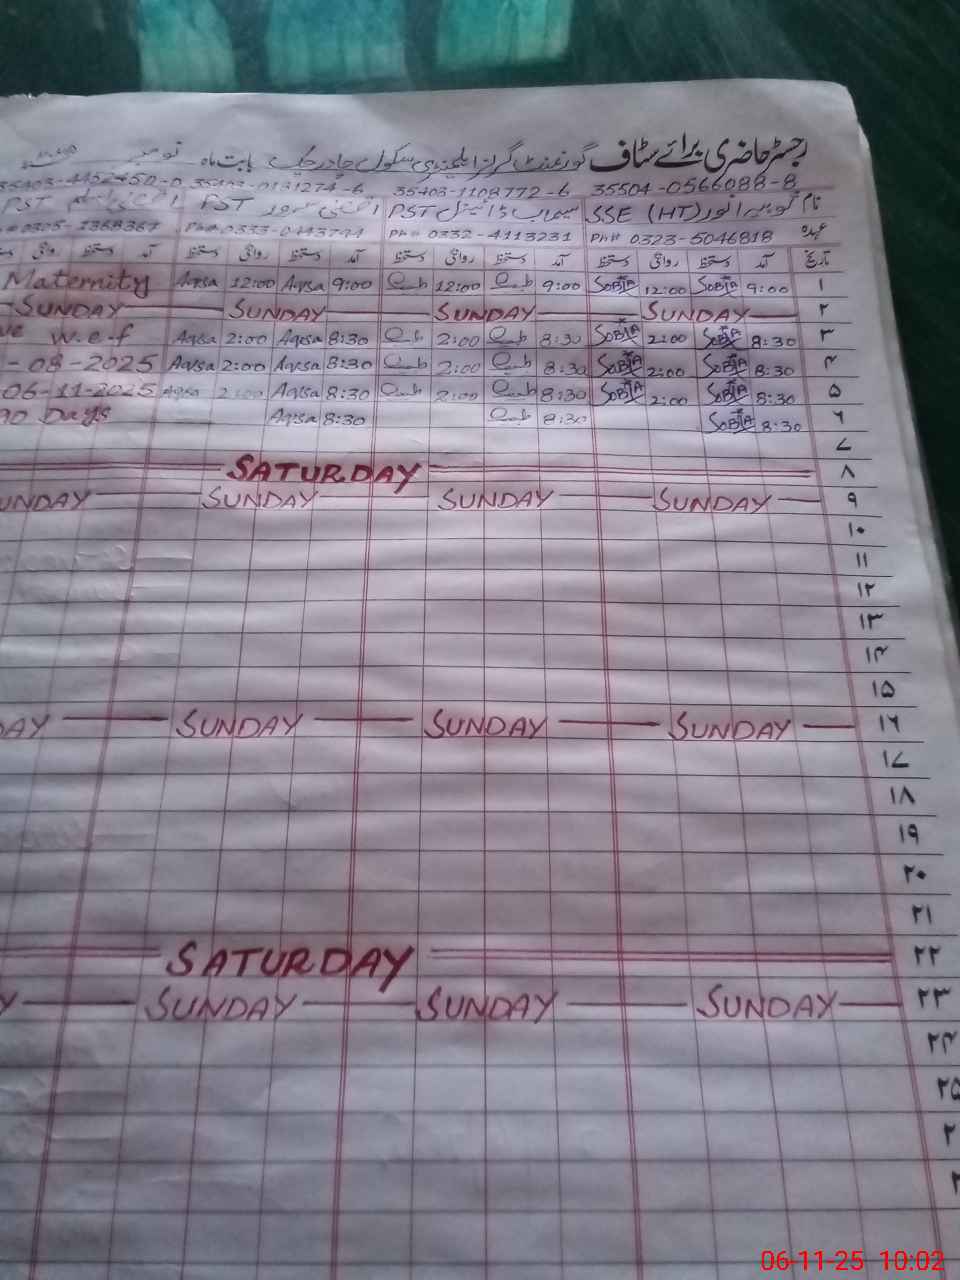 رجسٹر حاضری برائے سٹاف گورنمنٹ گرلز ایلیمنٹری سکول بابت ماہ نومبر
35504-0566088-8 35403-1108772-6 35403-0131274-6
SSE (HT) PST PST PST
Ph# 0323-5046818 Ph# 0332-4113231 Ph# 0333-0443744
تاریخ آمد دستخط روانگی دستخط آمد دستخط روانگی دستخط آمد دستخط روانگی دستخط آمد دستخط روانگی دستخط
۱ 9:00 SOBIA 12:00 SOBIA 9:00 12:00 9:00 Aqsa 12:00 Aqsa Maternity
۲ SUNDAY SUNDAY SUNDAY SUNDAY
۳ 8:30 SOBIA 2:00 SOBIA 8:30 2:00 8:30 Aqsa 2:00 Aqsa w.e.f
۴ 8:30 SOBIA 2:00 SOBIA 8:30 2:00 8:30 Aqsa 2:00 Aqsa -08-2025
۵ 8:30 SOBIA 2:00 SOBIA 8:30 2:00 8:30 Aqsa 2:00 Aqsa 06-11-2025
۶ 8:30 SOBIA 8:30 8:30 Aqsa 90 Days
۷
۸ SATURDAY
۹ SUNDAY SUNDAY SUNDAY SUNDAY
۱۰
۱۱
۱۲
۱۳
۱۴
۱۵
۱۶ SUNDAY SUNDAY SUNDAY DAY
۱۷
۱۸
۱۹
۲۰
۲۱
۲۲ SATURDAY
۲۳ SUNDAY SUNDAY SUNDAY Y
۲۴
۲۵
۲
۲
06-11-25 10:02